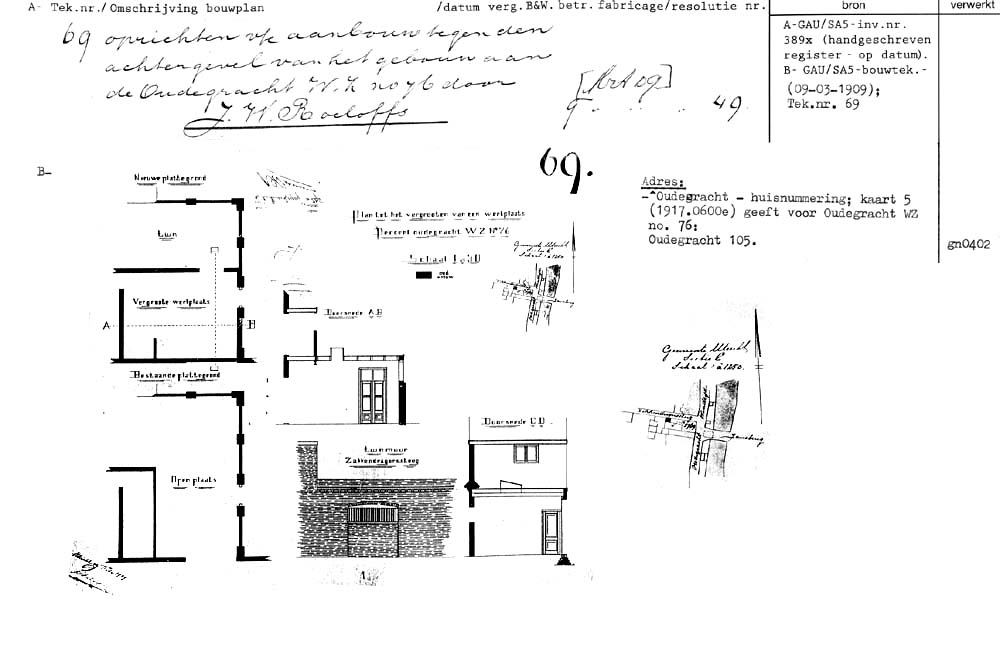 A- Tek.nr./Omschrijving bouwplan /datum verg.B&W. betr. fabricage/resolutie nr. bron verwerkt
69 oprichten v/e aanbouw tegen den
achtergevel van het gebouw aan
de Oudegracht W.Z no 76 door
J. W. Roeloffs
9 49
A-GAU/SA5-inv.nr.
389x (handgeschreven
register - op datum).
B- GAU/SA5-bouwtek.-
(09-03-1909);
Tek.nr. 69
B-
69.
Adres:
Oudegracht - huisnummering; kaart 5
(1917.0600e) geeft voor Oudegracht WZ
no. 76:
Oudegracht 105.
gn0402
Nieuwe plattegrond
Tuin
Vergroote werkplaats
A B
Bestaande plattegrond
Open plaats
Plan tot het vergrooten van een werkplaats
Perceel oudegracht W.Z. No 76
Schaal
Doorsnede A.B
Doorsnede C.D.
Tuinmuur
Zakkendragerssteeg
Gemeente Utrecht
Sectie C
Schaal à 1250.
Gemeente Utrecht
Sectie C
Schaal à 1250.